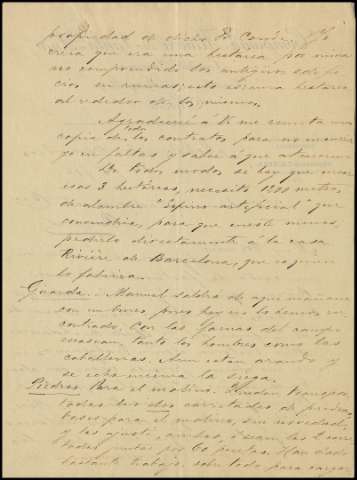 propiedad de dicho Sr. Conde. Yo
creia que era una hectarea por mina
no comprendido los antiguos edifi
cios en ruinas; esto es una hectarea
al rededor de los mismos.
Agradeceré á te me remita una
copia de todos los contratos para no incurrir
yo en faltas y saber á que atenerme
De todos modos se hay que cercar
esas 3 hectáreas, necesito 1200 metros
de alambre "espino artificial" que
convendria, para que cueste menos,
pedirlo directamente á la casa
Riviére de Barcelona, que es quien
lo fabrica.
Guarda. Manuel saldrá de aqui mañana
con un burro, pues hoy no lo hemos en
contrado. Con las faenas del campo
escasean tanto los hombres como las
caballerias. Aun estan arando y
se echa encima la siega.
Piedras. Para el molino. Quedan transpor
tadas las dos carretadas de piedras
bases para el molino, sin novedad,
y las ajusté, ambas, ó sean las 2 carre
tadas juntas por 60 pesetas. Han dado
bastante trabajo sobre todo para cargar